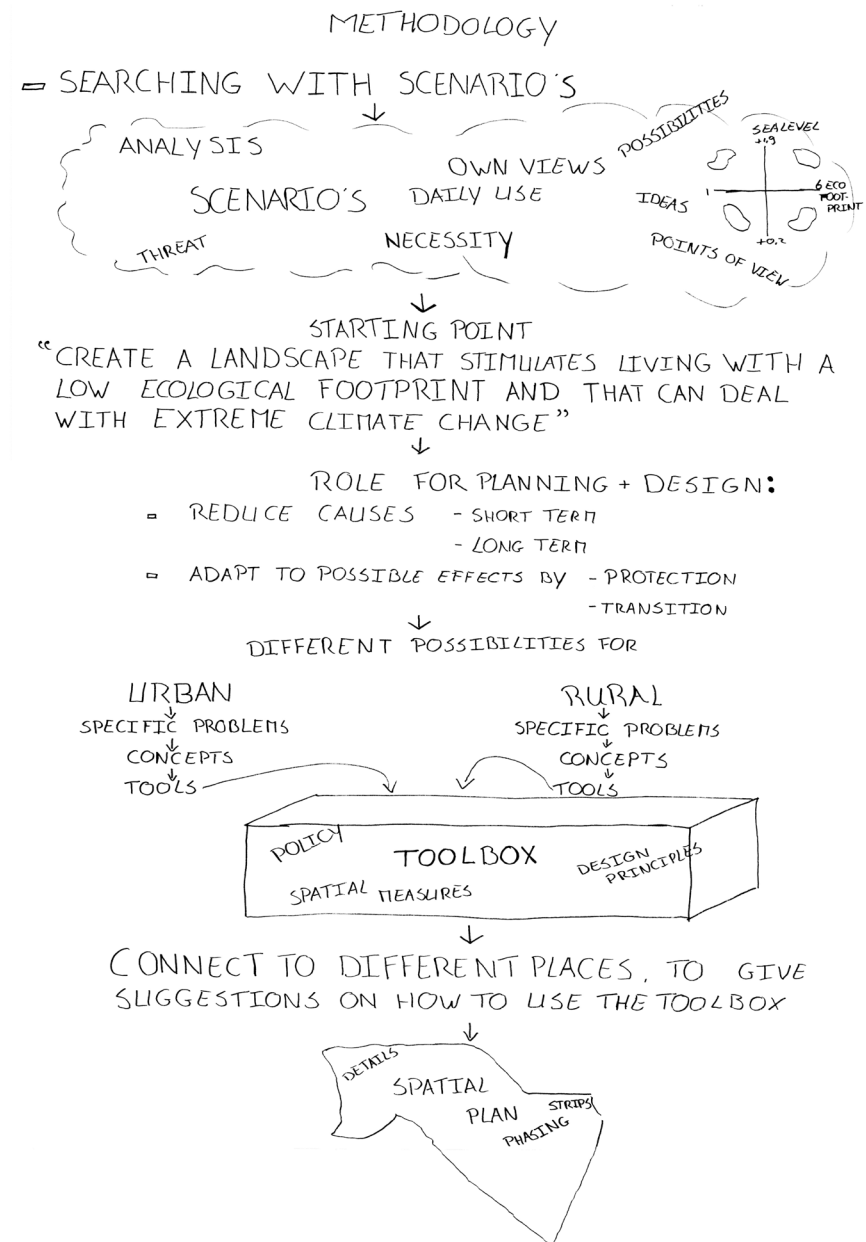 METHODOLOGY
- SEARCHING WITH SCENARIO'S
ANALYSIS
OWN VIEWS
POSSIBILITIES
SCENARIO'S
DAILY USE
IDEAS
THREAT
NECESSITY
POINTS OF VIEW
SEALEVEL
+1,9
1
6 ECO
FOOT-
PRINT
+0.2
STARTING POINT
"CREATE A LANDSCAPE THAT STIMULATES LIVING WITH A
LOW ECOLOGICAL FOOTPRINT AND THAT CAN DEAL
WITH EXTREME CLIMATE CHANGE"
ROLE FOR PLANNING + DESIGN:
- REDUCE CAUSES - SHORT TERM
- LONG TERM
- ADAPT TO POSSIBLE EFFECTS BY - PROTECTION
- TRANSITION
DIFFERENT POSSIBILITIES FOR
URBAN
SPECIFIC PROBLEMS
CONCEPTS
TOOLS
RURAL
SPECIFIC PROBLEMS
CONCEPTS
TOOLS
POLICY
TOOLBOX
DESIGN
PRINCIPLES
SPATIAL MEASURES
CONNECT TO DIFFERENT PLACES, TO GIVE
SUGGESTIONS ON HOW TO USE THE TOOLBOX
DETAILS
SPATIAL
PLAN
STRIPS
PHASING